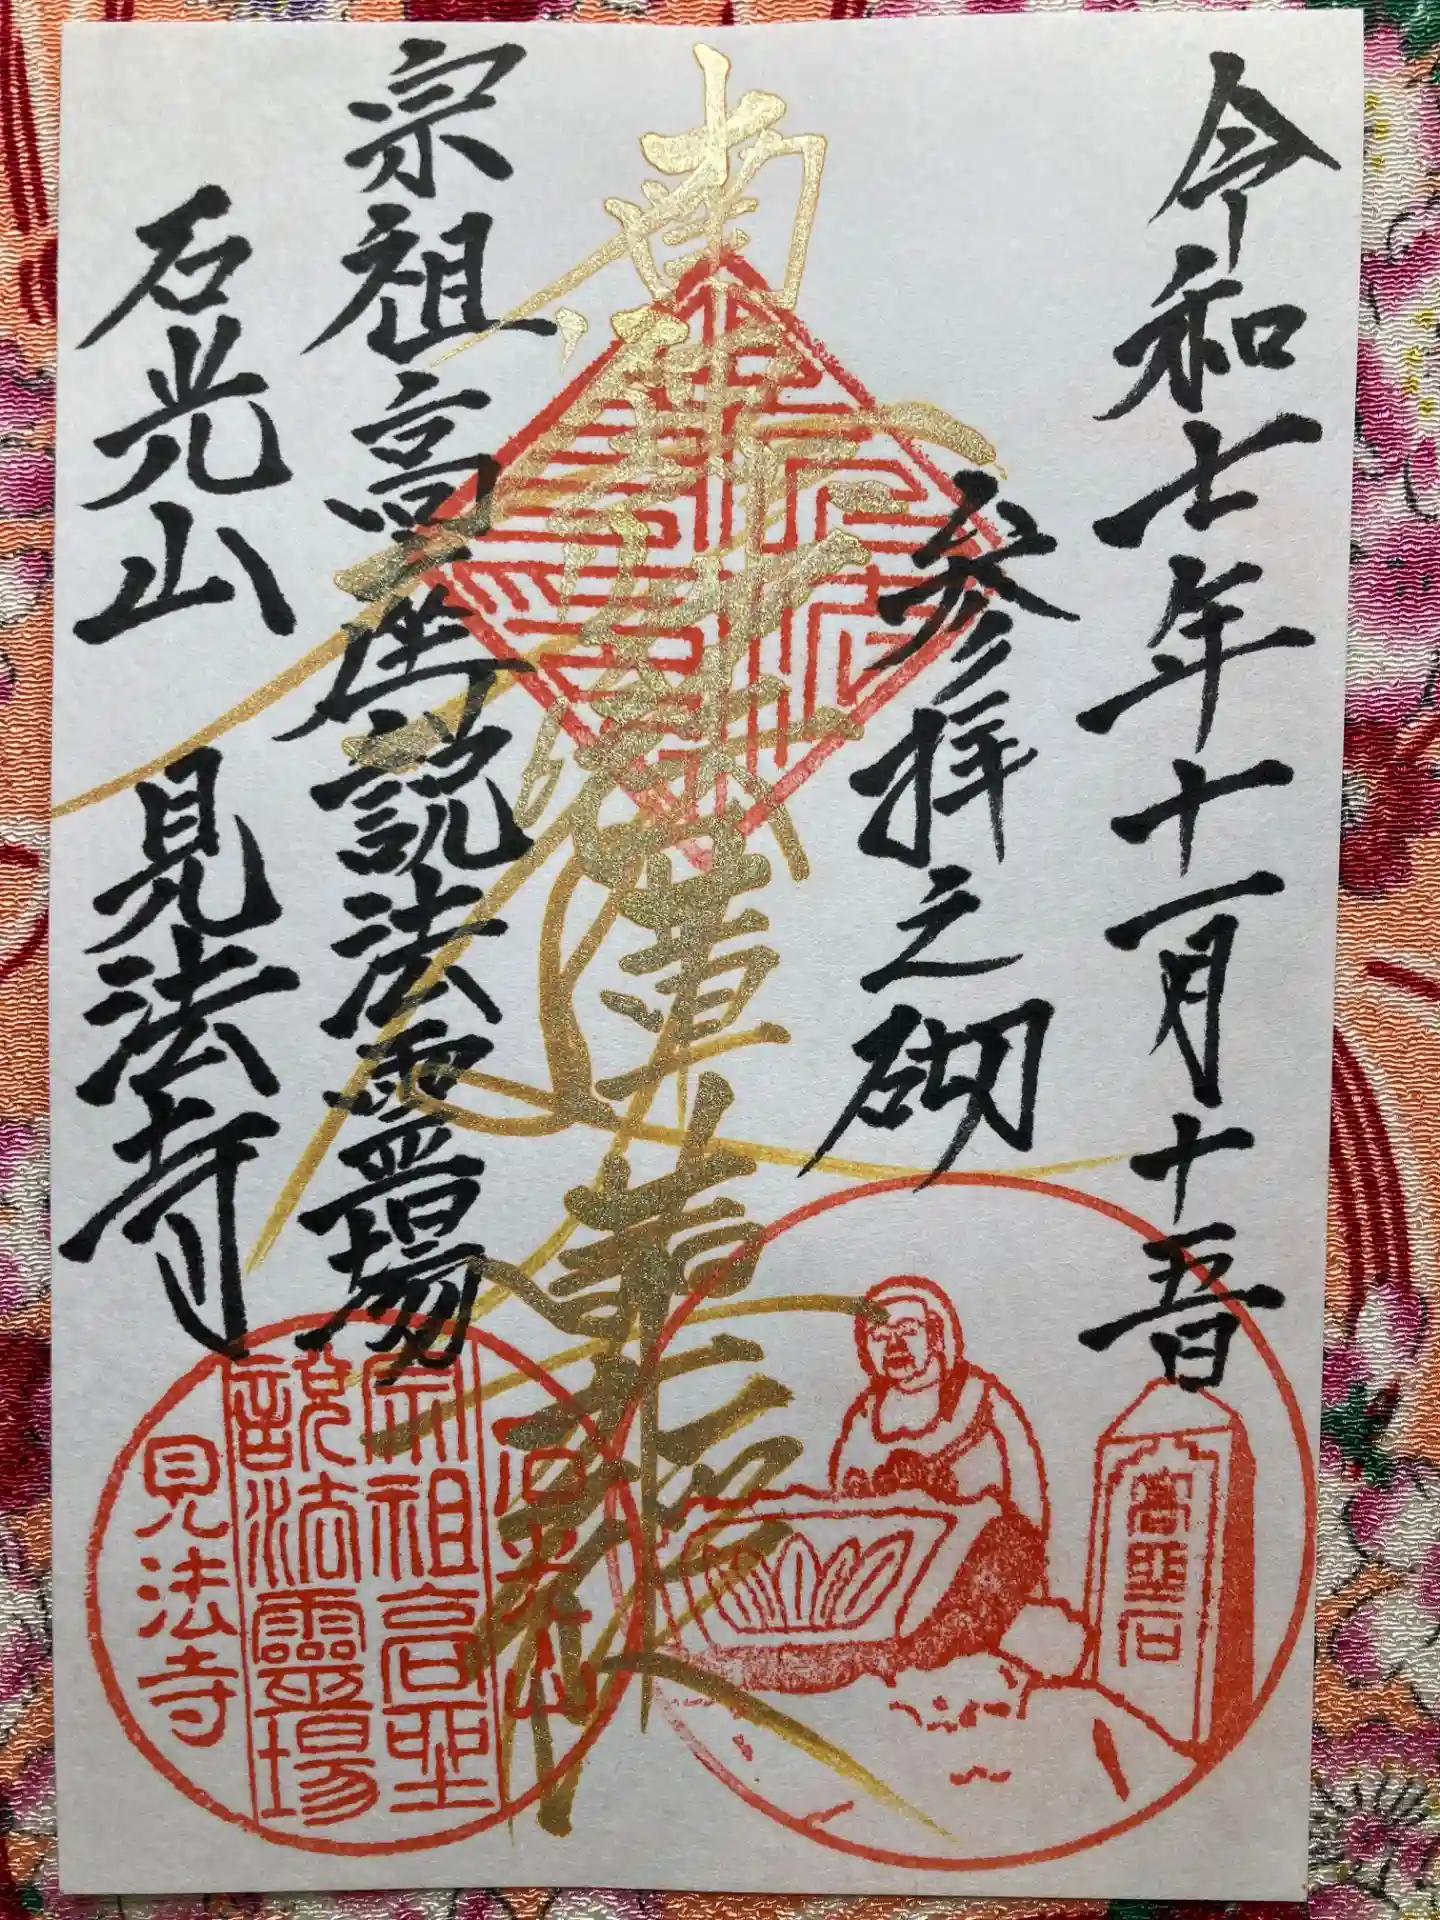 令和七年十一月十五日
参拝之砌
南無妙法蓮華経
宗祖高座説法霊場
石光山 見法寺
高座石
石光山
宗祖高座
説法靈場
見法寺